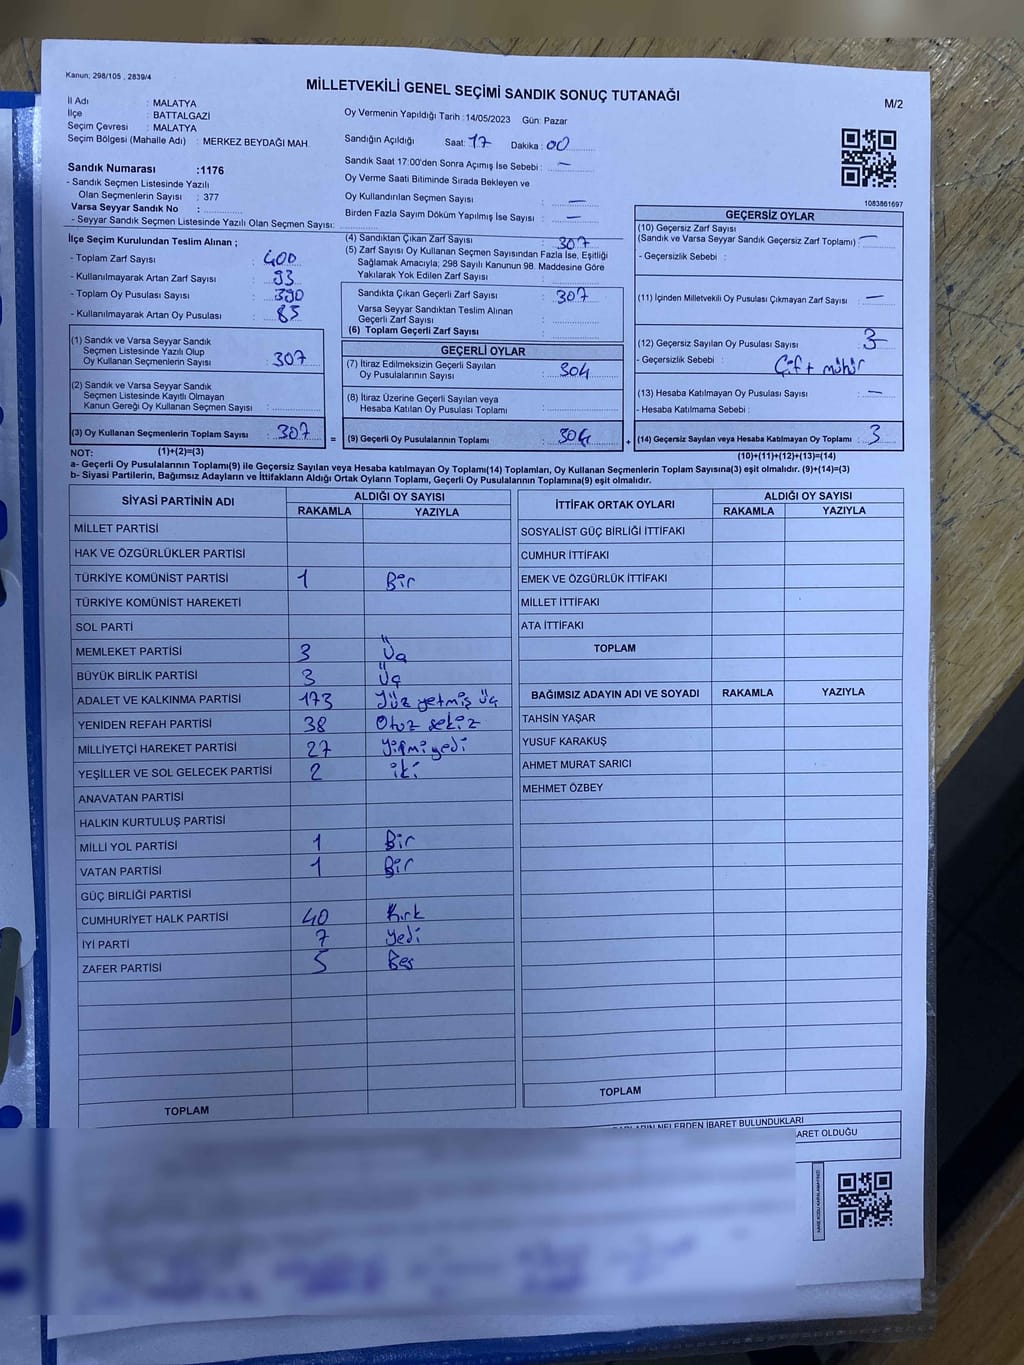 Kanun; 298/105 , 2839/4
MİLLETVEKİLİ GENEL SEÇİMİ SANDIK SONUÇ TUTANAĞI
M/2
İl Adı : MALATYA
İlçe : BATTALGAZİ
Seçim Çevresi : MALATYA
Seçim Bölgesi (Mahalle Adı) : MERKEZ BEYDAĞI MAH.
Oy Vermenin Yapıldığı Tarih : 14/05/2023 Gün: Pazar
Sandığın Açıldığı Saat: 17 Dakika : 00
Sandık Saat 17:00'den Sonra Açımış İse Sebebi : —
Oy Verme Saati Bitiminde Sırada Bekleyen ve
Oy Kullandırılan Seçmen Sayısı : —
Birden Fazla Sayım Döküm Yapılmış İse Sayısı : —
Sandık Numarası :1176
- Sandık Seçmen Listesinde Yazılı
Olan Seçmenlerin Sayısı : 377
Varsa Seyyar Sandık No :
- Seyyar Sandık Seçmen Listesinde Yazılı Olan Seçmen Sayısı:
1083861697
İlçe Seçim Kurulundan Teslim Alınan ;
- Toplam Zarf Sayısı : 400
- Kullanılmayarak Artan Zarf Sayısı : 93
- Toplam Oy Pusulası Sayısı : 390
- Kullanılmayarak Artan Oy Pusulası : 83
(1) Sandık ve Varsa Seyyar Sandık
Seçmen Listesinde Yazılı Olup
Oy Kullanan Seçmenlerin Sayısı : 307
(2) Sandık ve Varsa Seyyar Sandık
Seçmen Listesinde Kayıtlı Olmayan
Kanun Gereği Oy Kullanan Seçmen Sayısı :
(3) Oy Kullanan Seçmenlerin Toplam Sayısı : 307
(1)+(2)=(3)
(4) Sandıktan Çıkan Zarf Sayısı : 307
(5) Zarf Sayısı Oy Kullanan Seçmen Sayısından Fazla İse, Eşitliği
Sağlamak Amacıyla; 298 Sayılı Kanunun 98. Maddesine Göre
Yakılarak Yok Edilen Zarf Sayısı :
Sandıkta Çıkan Geçerli Zarf Sayısı : 307
Varsa Seyyar Sandıktan Teslim Alınan
Geçerli Zarf Sayısı :
(6) Toplam Geçerli Zarf Sayısı :
GEÇERLİ OYLAR
(7) İtiraz Edilmeksizin Geçerli Sayılan
Oy Pusulalarının Sayısı : 304
(8) İtiraz Üzerine Geçerli Sayılan veya
Hesaba Katılan Oy Pusulası Toplamı :
= (9) Geçerli Oy Pusulalarının Toplamı : 304 +
GEÇERSİZ OYLAR
(10) Geçersiz Zarf Sayısı
(Sandık ve Varsa Seyyar Sandık Geçersiz Zarf Toplamı) : —
- Geçersizlik Sebebi :
(11) İçinden Milletvekili Oy Pusulası Çıkmayan Zarf Sayısı : —
(12) Geçersiz Sayılan Oy Pusulası Sayısı : 3
- Geçersizlik Sebebi : Çift mühür
(13) Hesaba Katılmayan Oy Pusulası Sayısı : —
- Hesaba Katılmama Sebebi :
(14) Geçersiz Sayılan veya Hesaba Katılmayan Oy Toplamı : 3
(10)+(11)+(12)+(13)=(14)
NOT:
a- Geçerli Oy Pusulalarının Toplamı(9) ile Geçersiz Sayılan veya Hesaba katılmayan Oy Toplamı(14) Toplamları, Oy Kullanan Seçmenlerin Toplam Sayısına(3) eşit olmalıdır. (9)+(14)=(3)
b- Siyasi Partilerin, Bağımsız Adayların ve İttifakların Aldığı Ortak Oyların Toplamı, Geçerli Oy Pusulalarının Toplamına(9) eşit olmalıdır.
SİYASİ PARTİNİN ADI ALDIĞI OY SAYISI
RAKAMLA YAZIYLA
MİLLET PARTİSİ
HAK VE ÖZGÜRLÜKLER PARTİSİ
TÜRKİYE KOMÜNİST PARTİSİ 1 Bir
TÜRKİYE KOMÜNİST HAREKETİ
SOL PARTİ
MEMLEKET PARTİSİ 3 Üç
BÜYÜK BİRLİK PARTİSİ 3 Üç
ADALET VE KALKINMA PARTİSİ 173 Yüz yetmiş üç
YENİDEN REFAH PARTİSİ 38 Otuz sekiz
MİLLİYETÇİ HAREKET PARTİSİ 27 Yirmi yedi
YEŞİLLER VE SOL GELECEK PARTİSİ 2 iki
ANAVATAN PARTİSİ
HALKIN KURTULUŞ PARTİSİ
MİLLİ YOL PARTİSİ 1 Bir
VATAN PARTİSİ 1 Bir
GÜÇ BİRLİĞİ PARTİSİ
CUMHURİYET HALK PARTİSİ 40 Kırk
İYİ PARTİ 7 yedi
ZAFER PARTİSİ 5 Beş
TOPLAM
İTTİFAK ORTAK OYLARI ALDIĞI OY SAYISI
RAKAMLA YAZIYLA
SOSYALİST GÜÇ BİRLİĞİ İTTİFAKI
CUMHUR İTTİFAKI
EMEK VE ÖZGÜRLÜK İTTİFAKI
MİLLET İTTİFAKI
ATA İTTİFAKI
TOPLAM
BAĞIMSIZ ADAYIN ADI VE SOYADI RAKAMLA YAZIYLA
TAHSİN YAŞAR
YUSUF KARAKUŞ
AHMET MURAT SARICI
MEHMET ÖZBEY
TOPLAM
NELERDEN İBARET BULUNDUKLARI
İBARET OLDUĞU